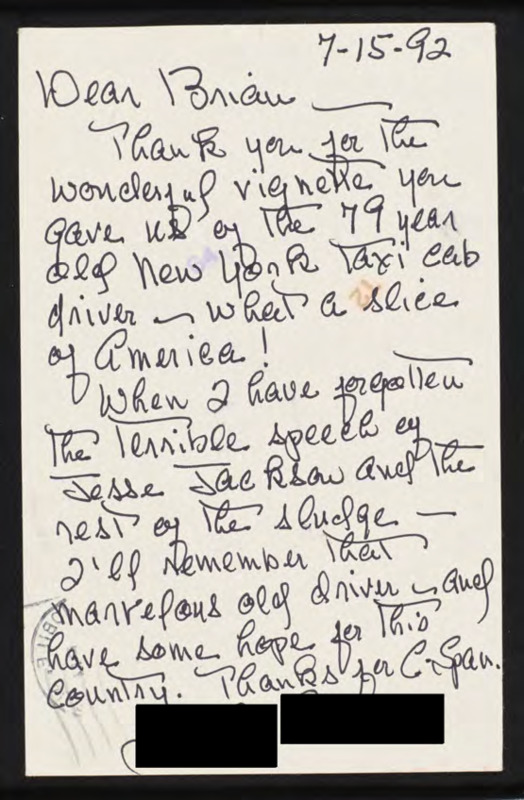 7-15-92
Dear Brian —
Thank you for the
wonderful vignette you
gave us of the 79 year
old New York Taxi cab
driver — what a slice
of America!
When I have forgotten
the terrible speech of
Jesse Jackson and the
rest of the sludge —
I'll remember that
marvelous old driver — and
have some hope for this
country. Thanks for C-Span.